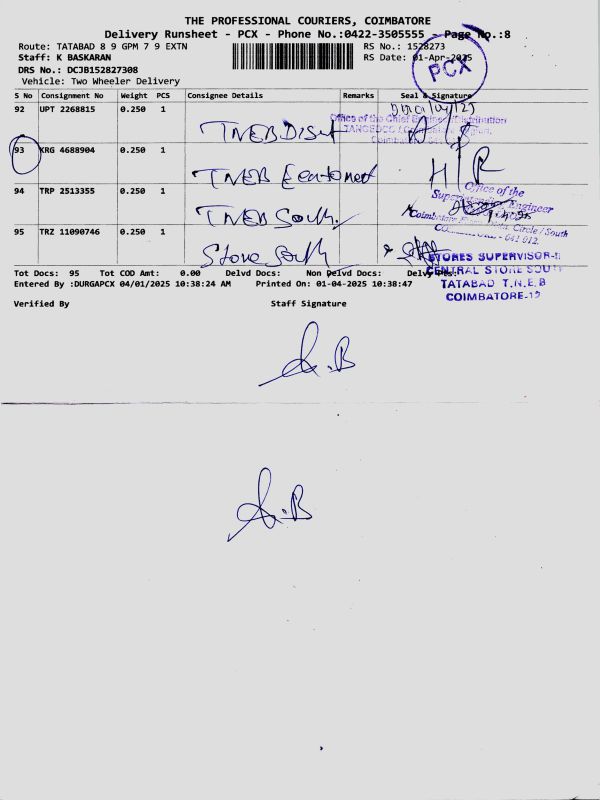 THE PROFESSIONAL COURIERS, COIMBATORE
Delivery Runsheet - PCX - Phone No.:0422-3505555 - Page No.:8
Route: TATABAD 8 9 GPM 7 9 EXTN
RS No.: 1528273
Staff: K BASKARAN
RS Date: 01-Apr-2025
PCX
DRS No.: DCJB152827308
Vehicle: Two Wheeler Delivery
S No Consignment No Weight PCS Consignee Details Remarks Seal & Signature
92 UPT 2268815 0.250 1
Office of the Chief Engineer/Distribution
TNEB
TANGEDCO
93 KRG 4688904 0.250 1
TNEB
94 TRP 2513355 0.250 1
Office of the
Superintending Engineer
TNEB South
Circle / South
641 012.
95 TRZ 11090746 0.250 1
Store South
STORES SUPERVISOR-II
CENTRAL STORE SOUTH
TATABAD T.N.E.B
COIMBATORE-12
Tot Docs: 95 Tot COD Amt: 0.00 Delvd Docs: Non Delvd Docs:
Entered By :DURGAPCX 04/01/2025 10:38:24 AM Printed On: 01-04-2025 10:38:47
Verified By Staff Signature